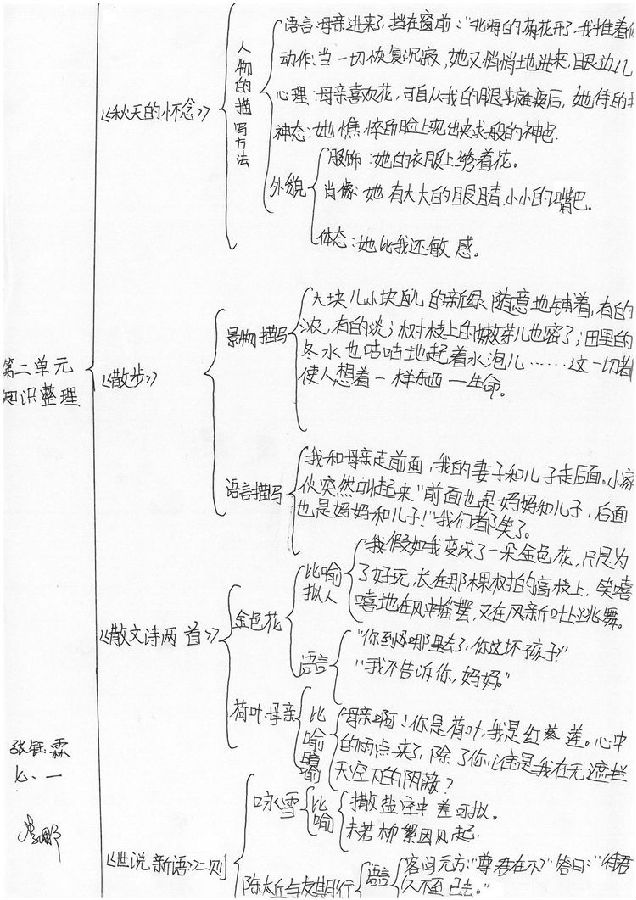 第二单元
知识整理
《秋天的怀念》
人物的描写方法
语言:母亲进来了,挡在窗前:"北海的菊花开了,我推着
动作:当一切恢复沉寂,她又悄悄地进来,眼边儿
心理:母亲喜欢花,可自从我的腿瘫痪后,她侍的
神态:她憔悴的脸上现出央求般的神色
外貌
服饰:她的衣服上绣着花。
肖像:她有大大的眼睛,小小的嘴巴。
体态:她比我还敏感。
《散步》
景物描写
大块儿小块儿的新绿随意地铺着,有的
浓,有的淡;树枝上的嫩芽儿也密了;田里的
冬水也咕咕地起着水泡儿……这一切都
使人想着一样东西—生命。
语言描写
我和母亲走前面,我的妻子和儿子走后面。小家
伙突然叫起来"前面也是妈妈和儿子,后面
也是妈妈和儿子!"我们都笑了。
《散文诗两首》
金色花
比喻
拟人
假如我变成了一朵金色花,只是为
了好玩,长在那棵树的高枝上,笑嘻
嘻地在风中摇摆,又在新叶上跳舞。
语言
"你到哪里去了,你这坏孩子"
"我不告诉你,妈妈。"
荷叶·母亲
比喻
母亲啊!你是荷叶,我是红莲。心中
的雨点来了,除了你,谁是我在无遮拦
天空下的荫蔽?
《世说新语》二则
咏雪
比喻
撒盐空中差可拟。
未若柳絮因风起
陈太丘与友期行
语言
客问元方:"尊君在不?"答曰:"待君
久不至已去。"
七、一